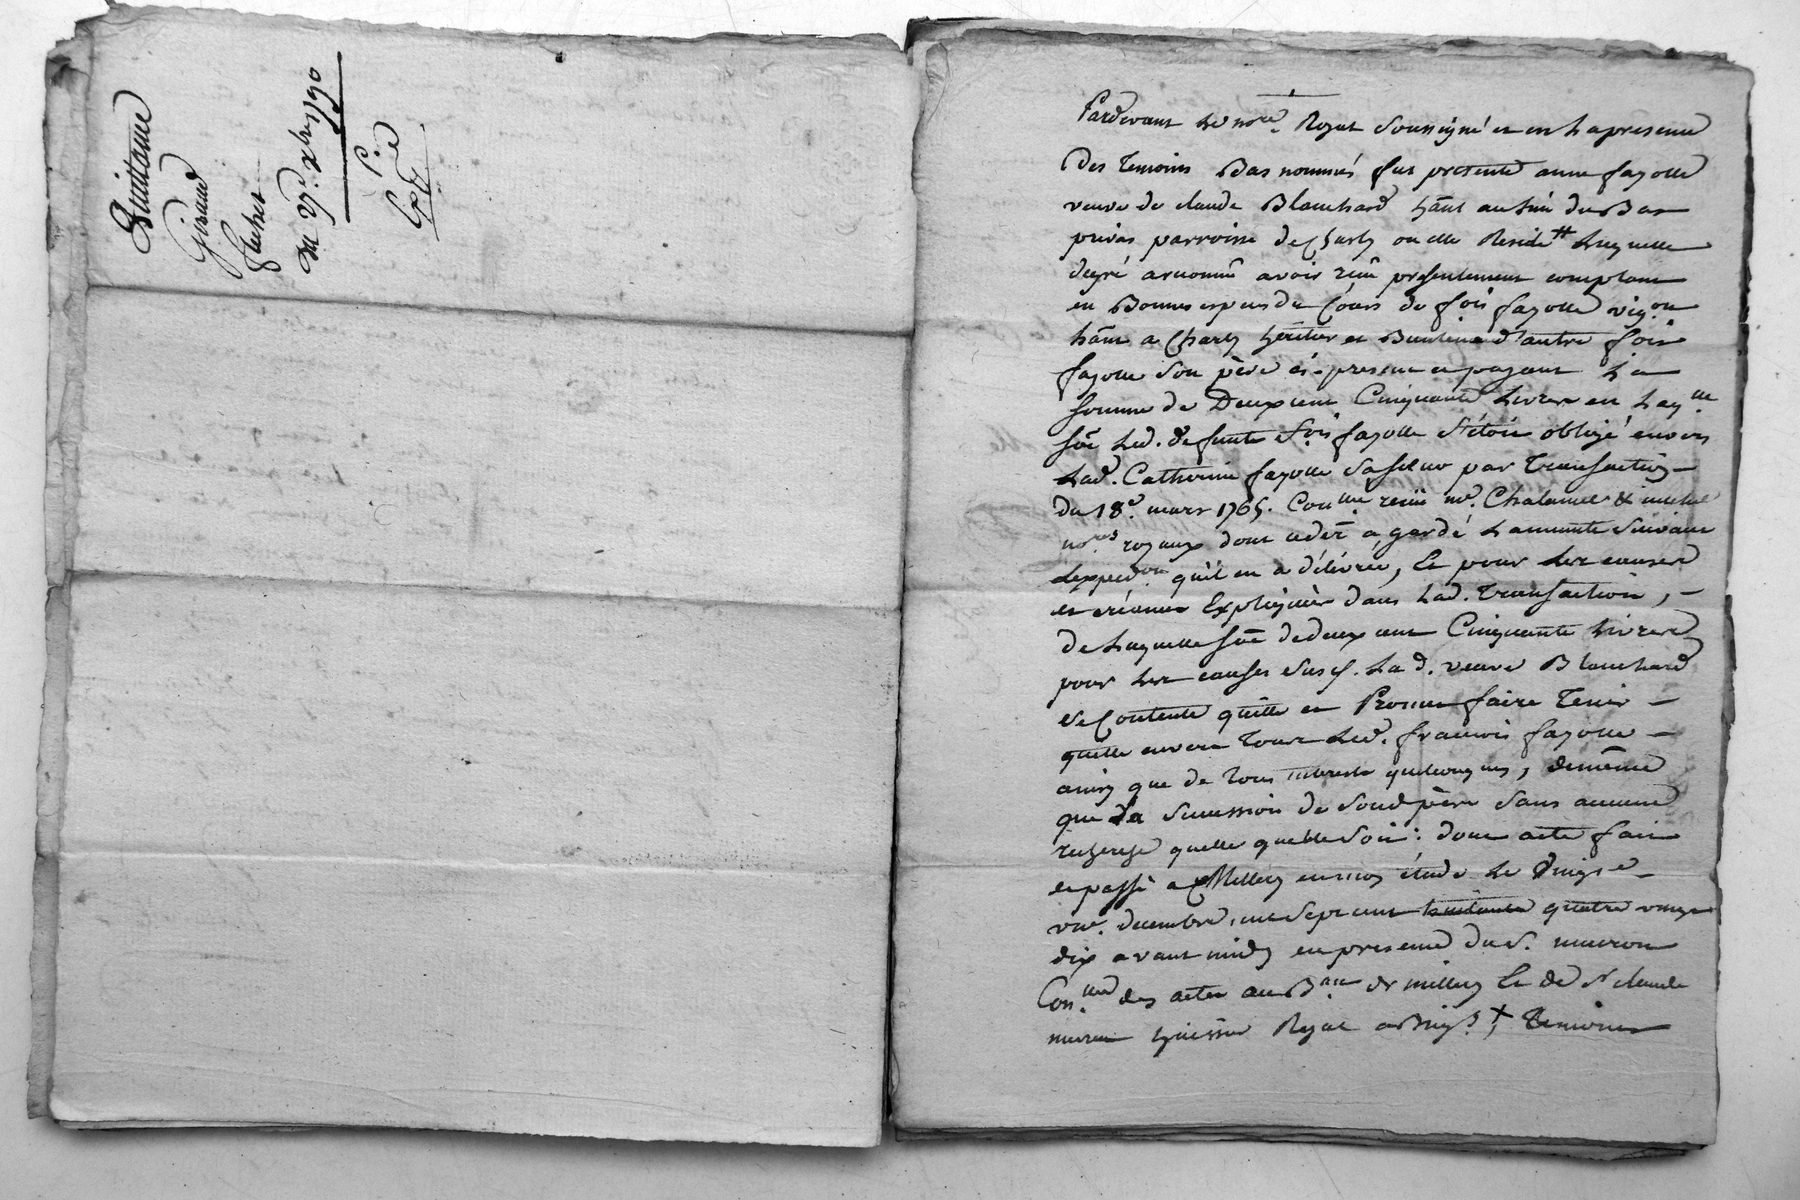 Quittance
Giraud
du 23e. xbre 1790
Pardevant le nore. Royal soussigné et en la presence
des temoins Bas nommés fut presente anne fayolle
veuve de claude Blanchard hant au lieu du Bas
privas parroisse de Charly ou elle Reside # Laquelle
degré a reconnû avoir reçu presentement comptant
en Bonnes especes du Cours de fois fayolle vigon
hant a Charly heritier et d'autre fois
fayolle son père ci-present et payant La
somme de Deux cent Cinquante Livres en Laqlle
sôe Led. defunt fois fayolle s'étoit obligé envers
Lad. Catherine fayolle sa sœur par Transaction
du 18e. mars 1765. Conllée. reçuë me. Chalamel &
nores royaux dont a gardé La minutte suivant
L'expedon. qu'il en a délivrée, Et pour Les causes
et créances Expliquées dans Lad. Transaction,
de Laquelle sôe de deux cent Cinquante Livres
pour Les causes susd. Lad. veuve Blanchard
se Contente quitte et Promet faire Tenir
quitte envers Tous Led. francois fayolle
ainsy que de Tous interests quelconques, demême
que La succession de soud. père sans aucune
reserve quelle quelle soit: dont acte fait
et passé a Millery en mon étude Le vingt
 decembre, mil sept cent huitante quatre vingt
dix avant midy en presence du S. 
Conlleur des actes au Bau de millery Et de Sr claude
 huissier Royal a Brigs. X, Temoins